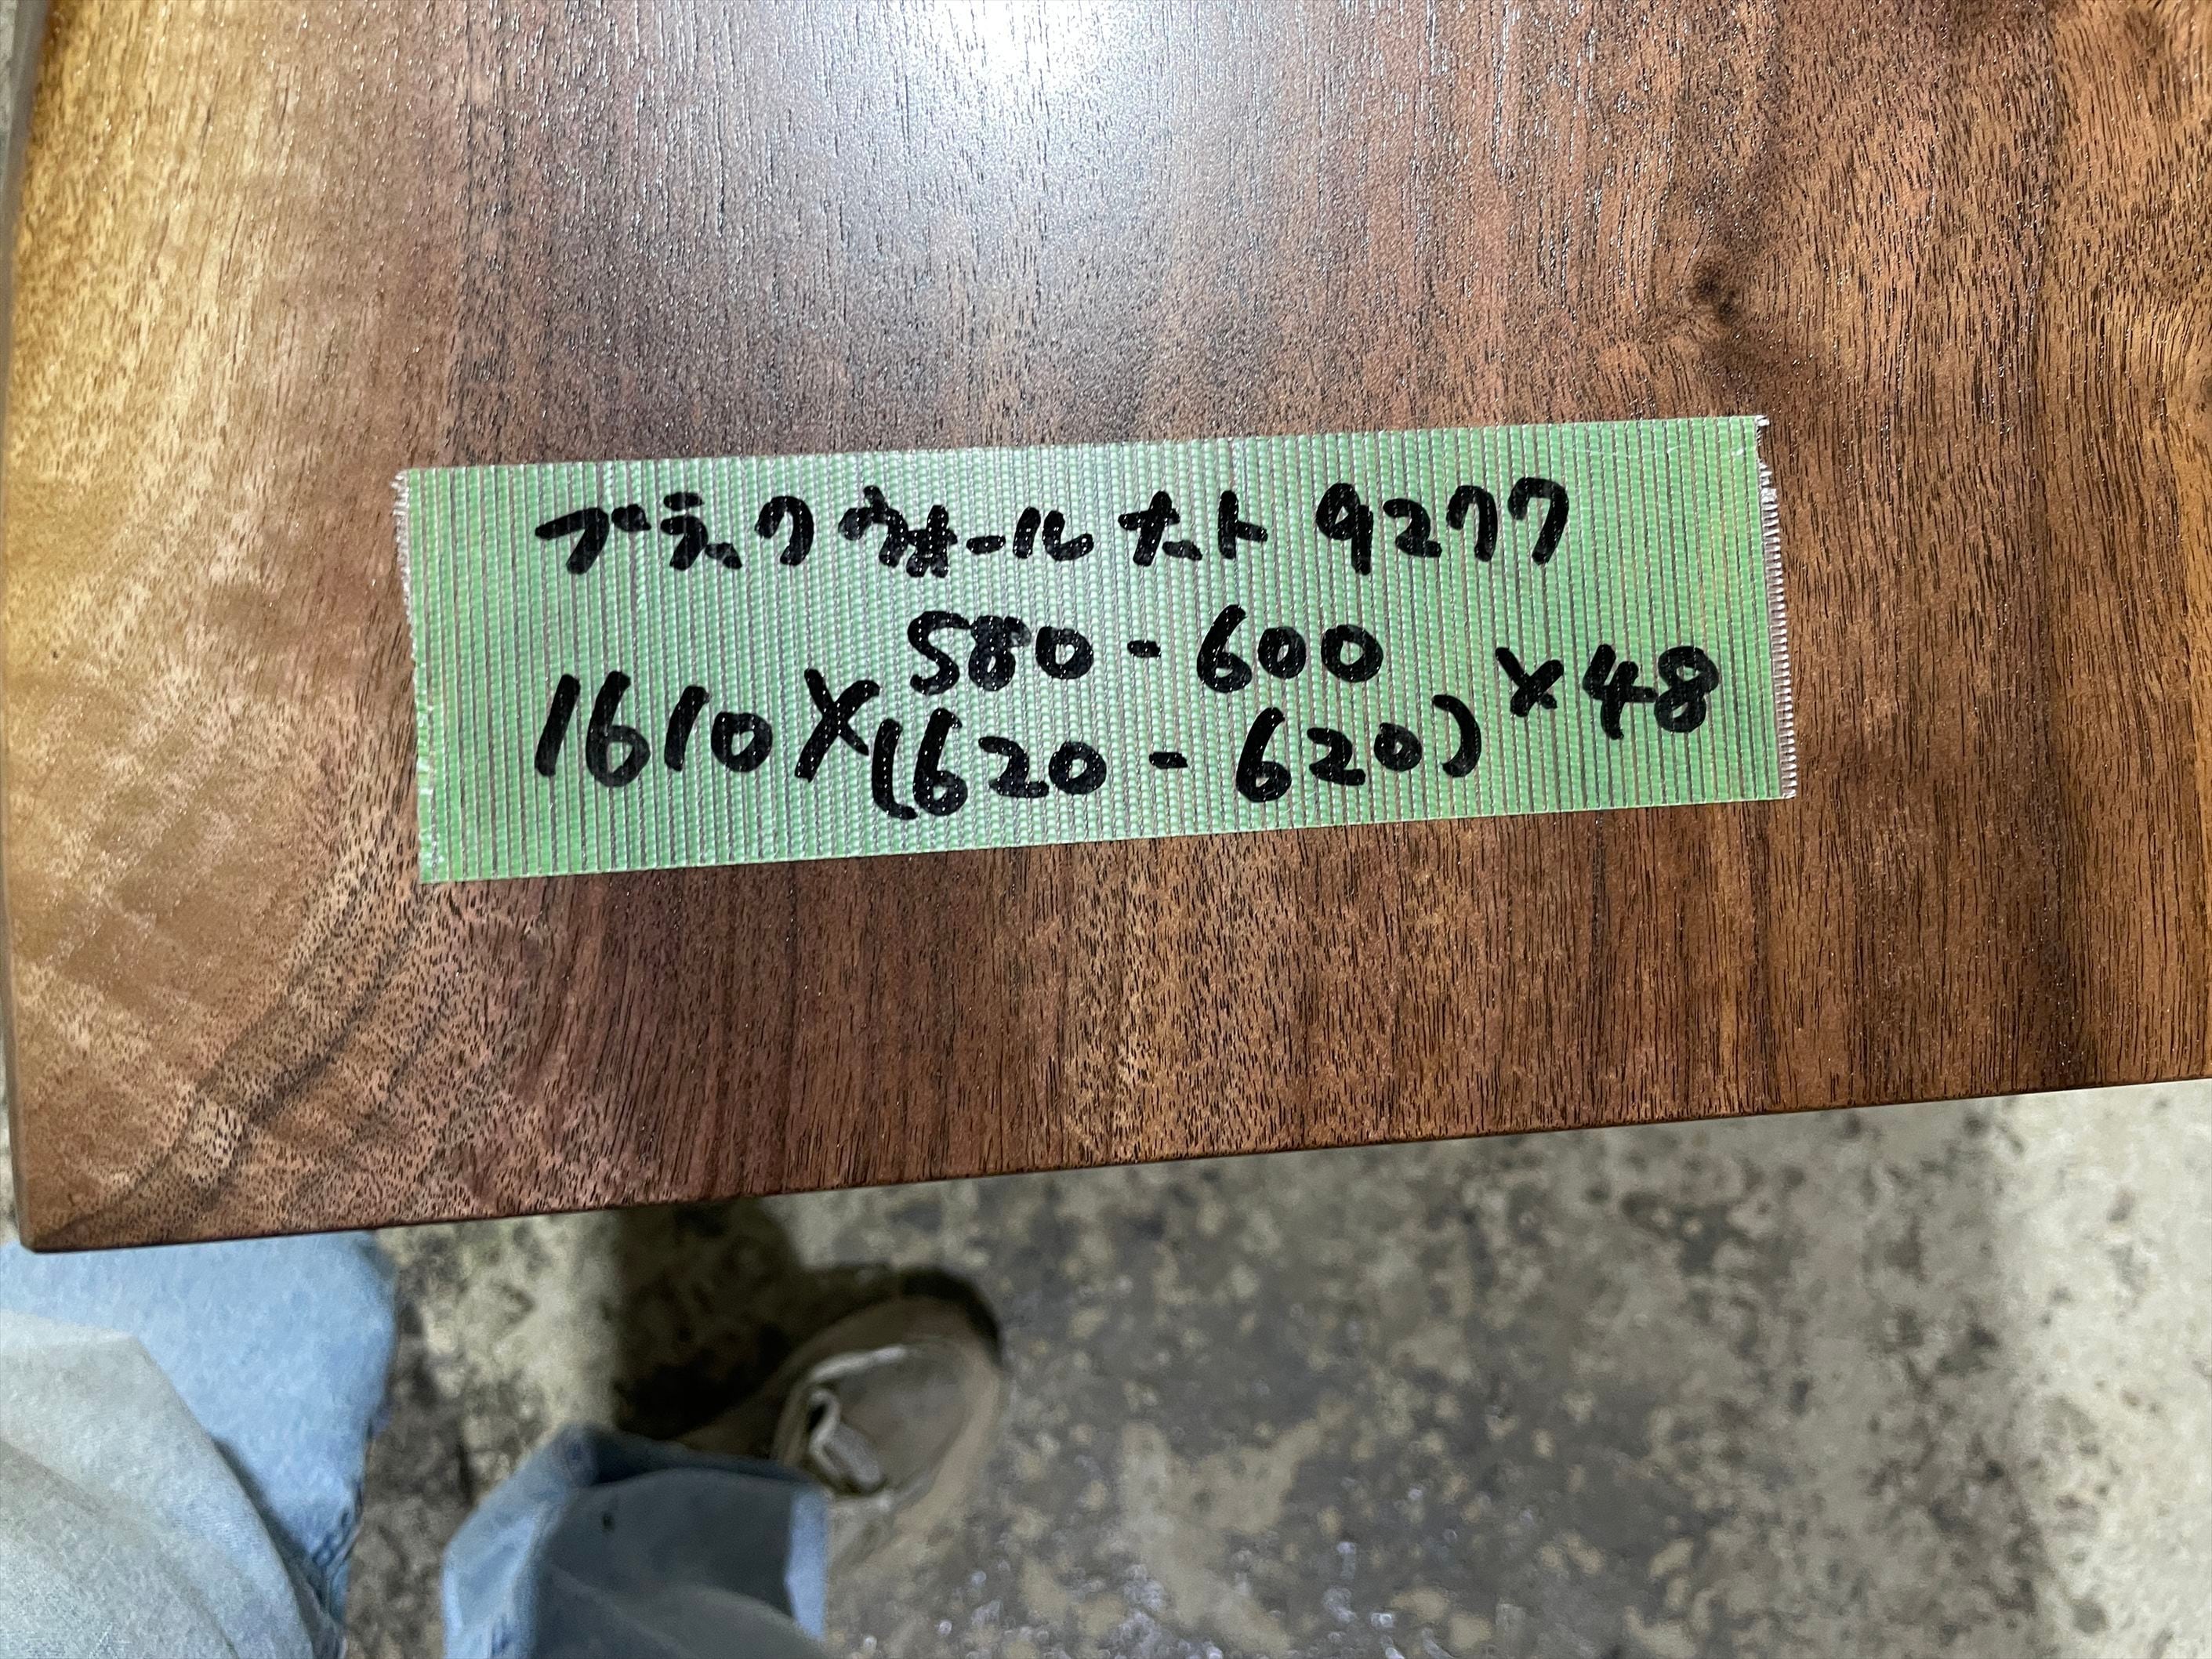 ブラックウォールナット 9277
580-600
1610×(620-620)×48